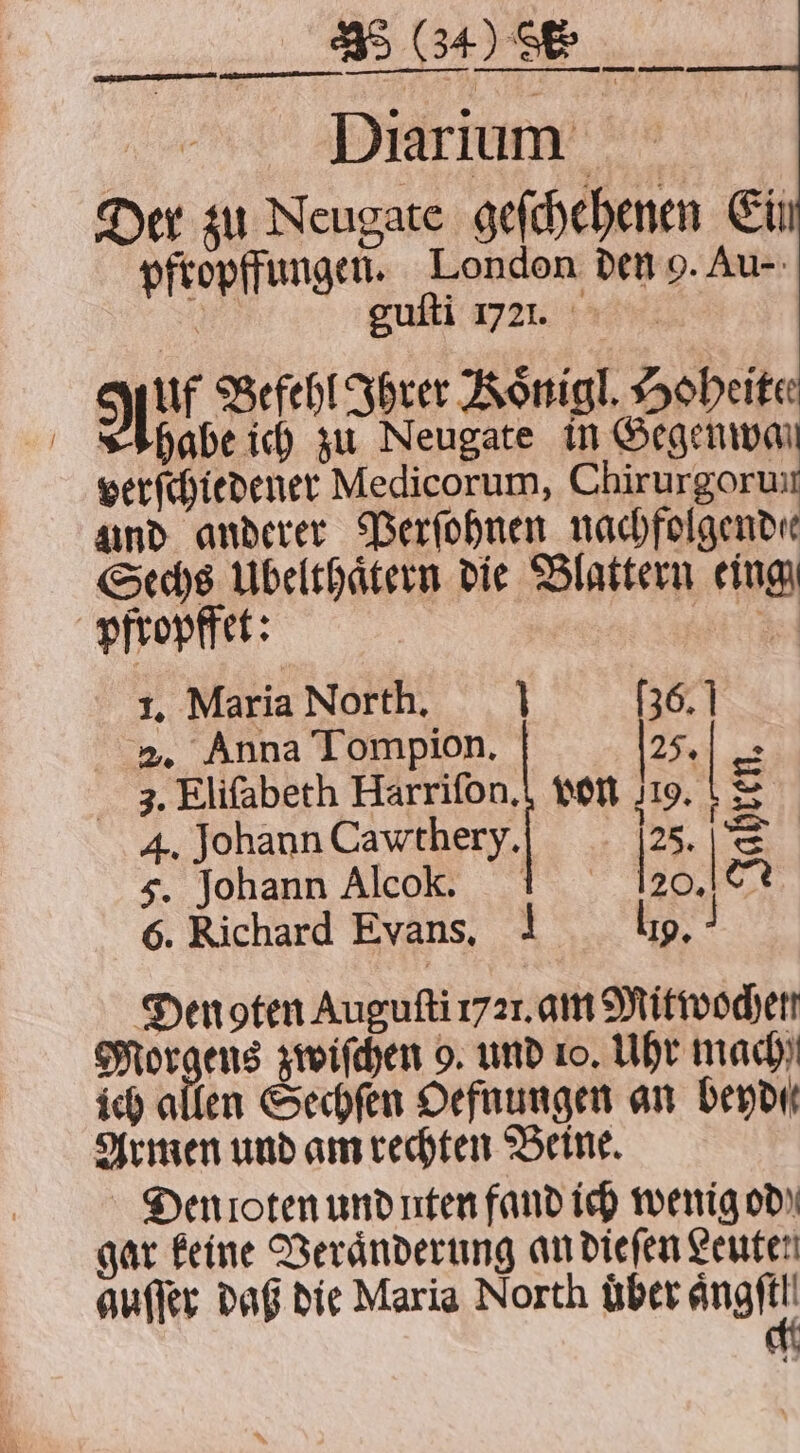 (34)
Diarium
Der zu Neugate geſchehenen Ein
pfropffungen. London den 9. Au-
guſti 1721.
Auf Befehl Ihrer Koͤnigl. Hoheite
habe ich zu Neugate in Gegenwa
verſchiedener Medicorum, Chirurgorum
und anderer Perſohnen nachfolgende
Sechs Ubelthaͤtern die Blattern eing
pfropffet:
1. Maria North. [36.]
2. Anna Tompion. 25.
3. Eliſabeth Harriſon. von 19. Jahren
4. Johann Cawthery. 25.
5. Johann Alcok. 20.
6. Richard Evans. 19.
Den 9ten Auguſti 1721. am Mitwochen
Morgens zwiſchen 9. und 10. Uhr mach
ich allen Sechſen Oefnungen an beyde
Armen und am rechten Beine.
Den 10ten und 11ten fand ich wenig od
gar keine Veraͤnderung an dieſen Leuten
auſſer daß die Maria North uͤber aͤngſtl